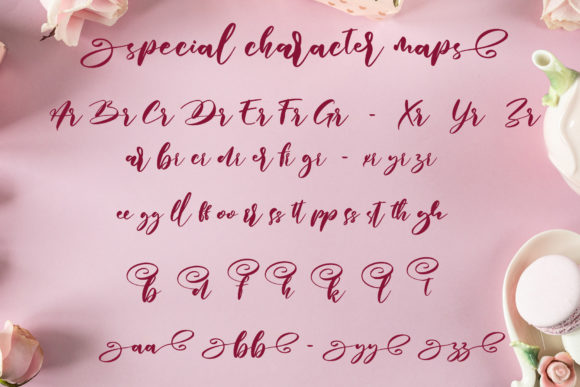 special character maps
Ar Br Cr Dr Er Fr Gr - Xr Yr Zr
ar br cr dr er fr gr - xr yr zr
ee gg ll ff oo rr ss tt pp ss st th gh
b d f h k l t
aa bb - yy zz